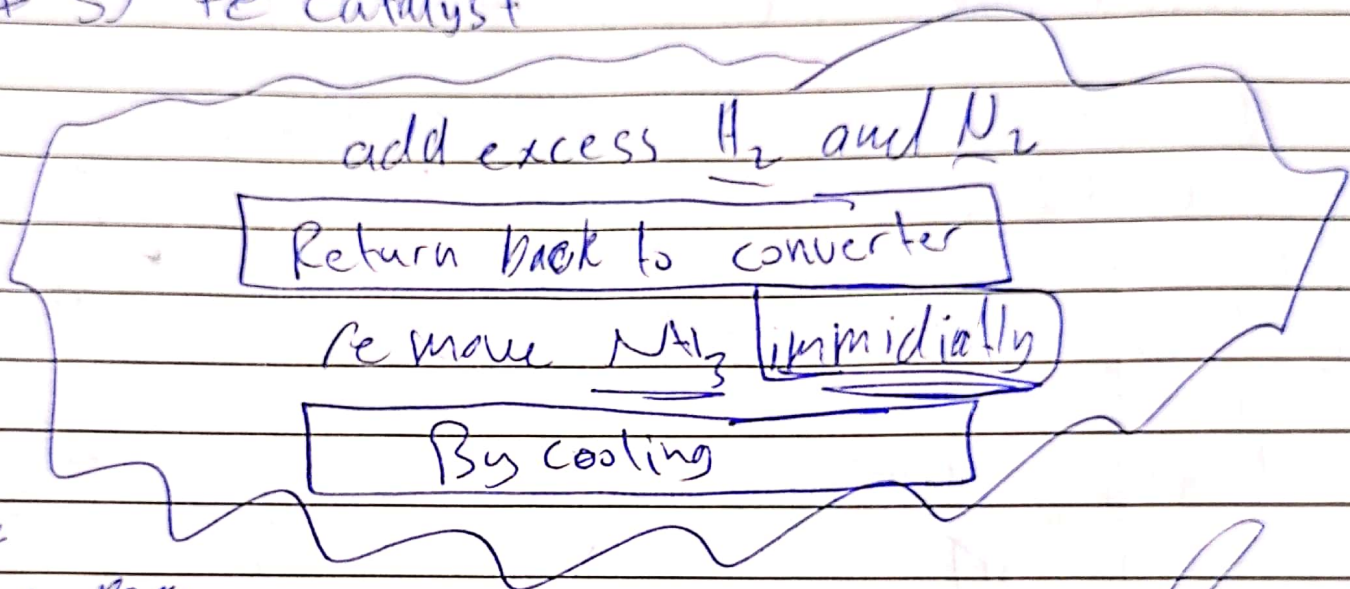 3) Fe Catalyst
add excess H₂ and N₂
Return back to converter
remove NH₃ immidially
By cooling